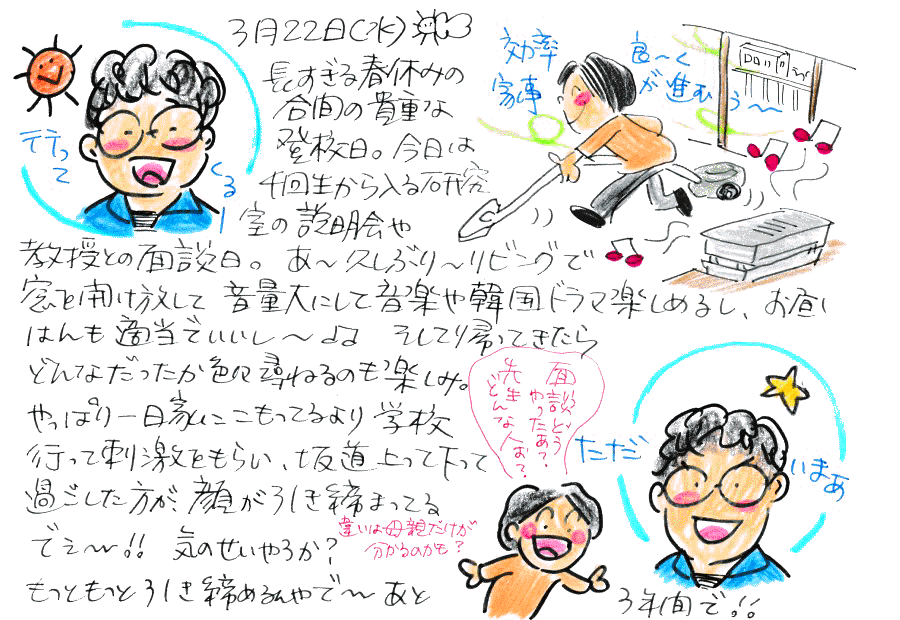 3月22日(水)
長すぎる春休みの
合間の貴重な
登校日。今日は
4回生から入る研究
室の説明会や
教授との面談日。あ〜久しぶり〜リビングで
窓を開け放して音量大にして音楽や韓国ドラマ楽しめるし、お昼ご
はんも適当でいいし〜♪♪ そして帰ってきたら
どんなだったか色々尋ねるのも楽しみ。
やっぱり一日家にこもってるより学校
行って刺激をもらい、坂道上って下って
過ごした方が、顔が引き締まってる
でぇ〜!! 気のせいやろか?
もっともっと引き締めるんやで〜あと
3年間で!!
行って
くるー
効率良〜く
家事が進むぅ〜
面談どう
やったあ?
先生
どんな人お?
違いは母親だけが
分かるのかも?
ただ
いまぁ